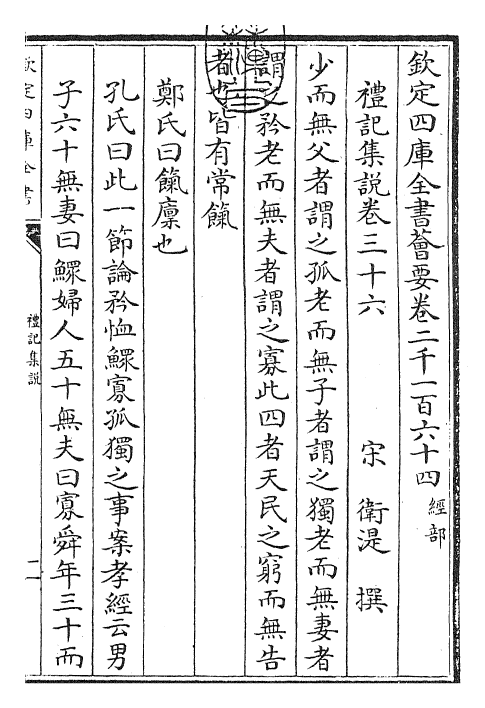 欽定四庫全書薈要卷二千一百六十四 經部
禮記集說卷三十六 宋 衛湜 撰
少而無父者謂之孤老而無子者謂之獨老而無妻者
謂之矜老而無夫者謂之寡此四者天民之窮而無告
者也皆有常餼
鄭氏曰餼廩也
孔氏曰此一節論矜恤鰥寡孤獨之事案孝經云男
子六十無妻曰鰥婦人五十無夫曰寡舜年三十而
欽定四庫全書
禮記集說